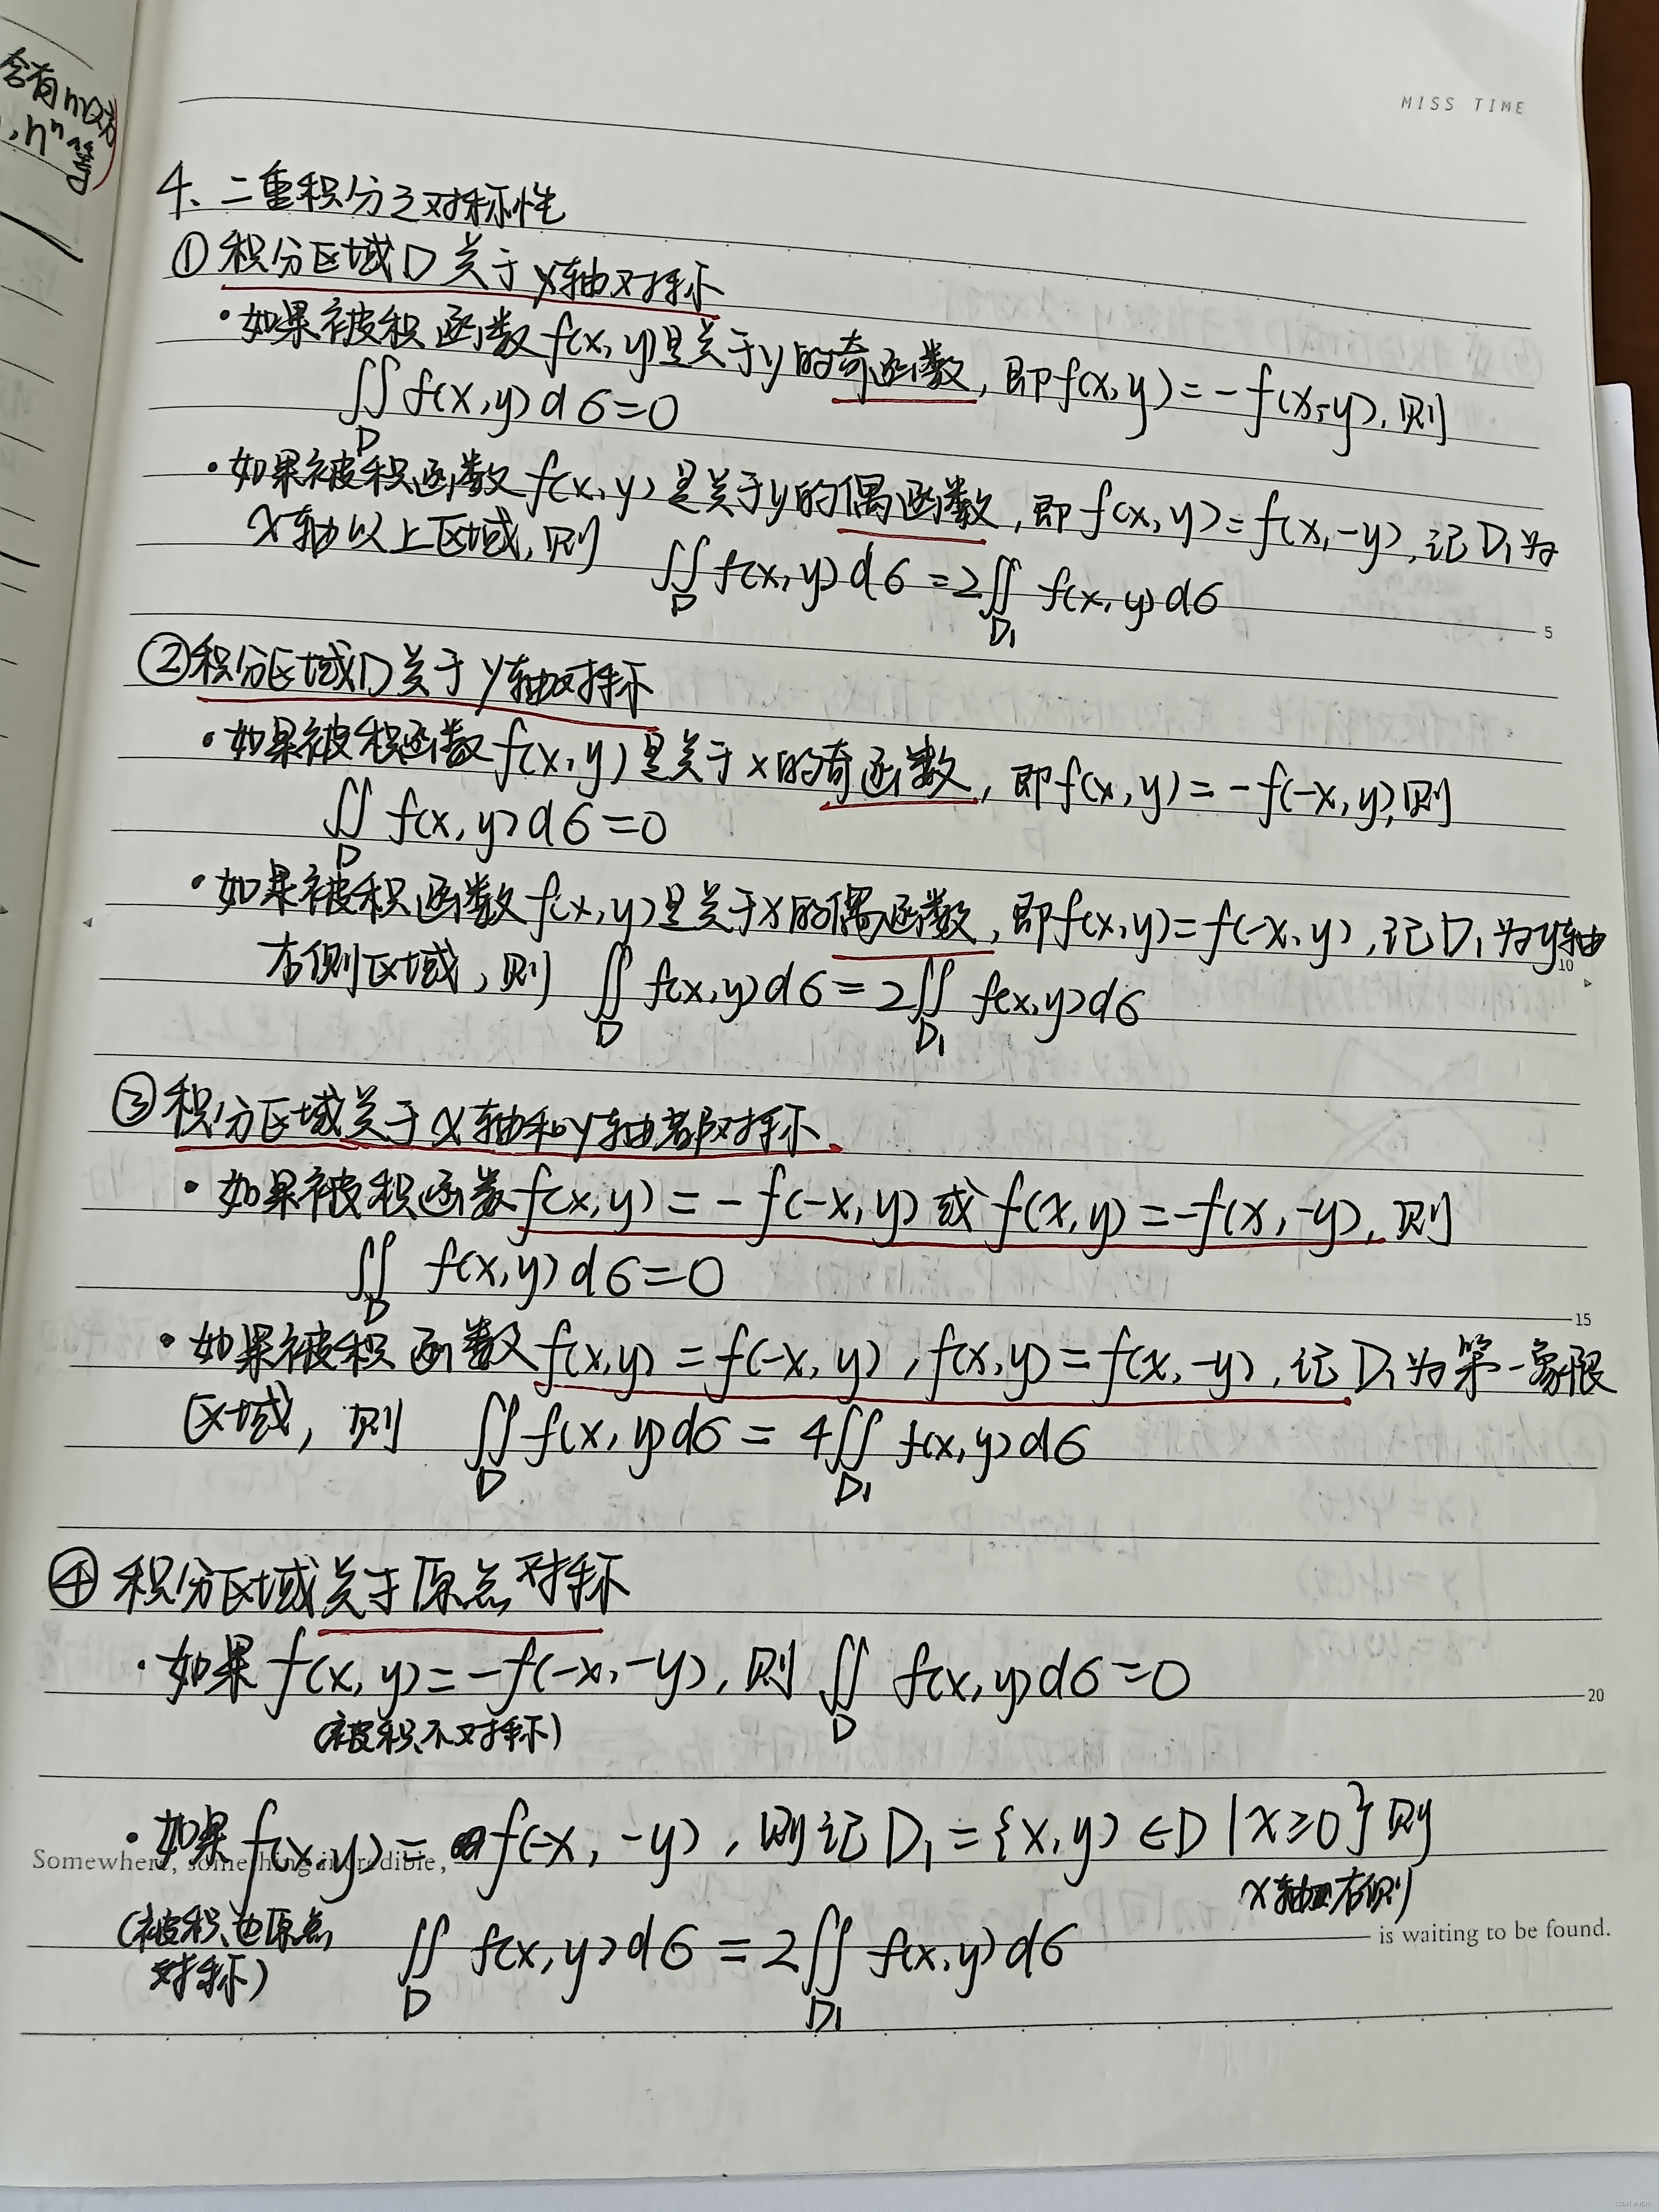 含有n次方
,nⁿ等
MISS TIME
4、二重积分之对称性
①积分区域D关于x轴对称
·如果被积函数f(x,y)是关于y的奇函数,即f(x,y)=-f(x,-y),则
∬_D f(x,y)dσ=0
·如果被积函数f(x,y)是关于y的偶函数,即f(x,y)=f(x,-y),记D₁为
x轴以上区域,则 ∬_D f(x,y)dσ=2∬_D₁ f(x,y)dσ
5
②积分区域D关于y轴对称
·如果被积函数f(x,y)是关于x的奇函数,即f(x,y)=-f(-x,y),则
∬_D f(x,y)dσ=0
·如果被积函数f(x,y)是关于x的偶函数,即f(x,y)=f(-x,y),记D₁为y轴
10
右侧区域,则 ∬_D f(x,y)dσ=2∬_D₁ f(x,y)dσ
③积分区域关于x轴和y轴都对称
·如果被积函数f(x,y)=-f(-x,y)或f(x,y)=-f(x,-y),则
∬_D f(x,y)dσ=0
15
·如果被积函数f(x,y)=f(-x,y),f(x,y)=f(x,-y),记D₁为第一象限
区域,则 ∬_D f(x,y)dσ=4∬_D₁ f(x,y)dσ
④积分区域关于原点对称
·如果f(x,y)=-f(-x,-y),则∬_D f(x,y)dσ=0
20
(被积不对称)
·如果f(x,y)=f(-x,-y),则记D₁={x,y)∈D|x≥0}则
Somewhere, something incredible,
x轴右侧
(被积也原点
对称)
∬_D f(x,y)dσ=2∬_D₁ f(x,y)dσ
is waiting to be found.